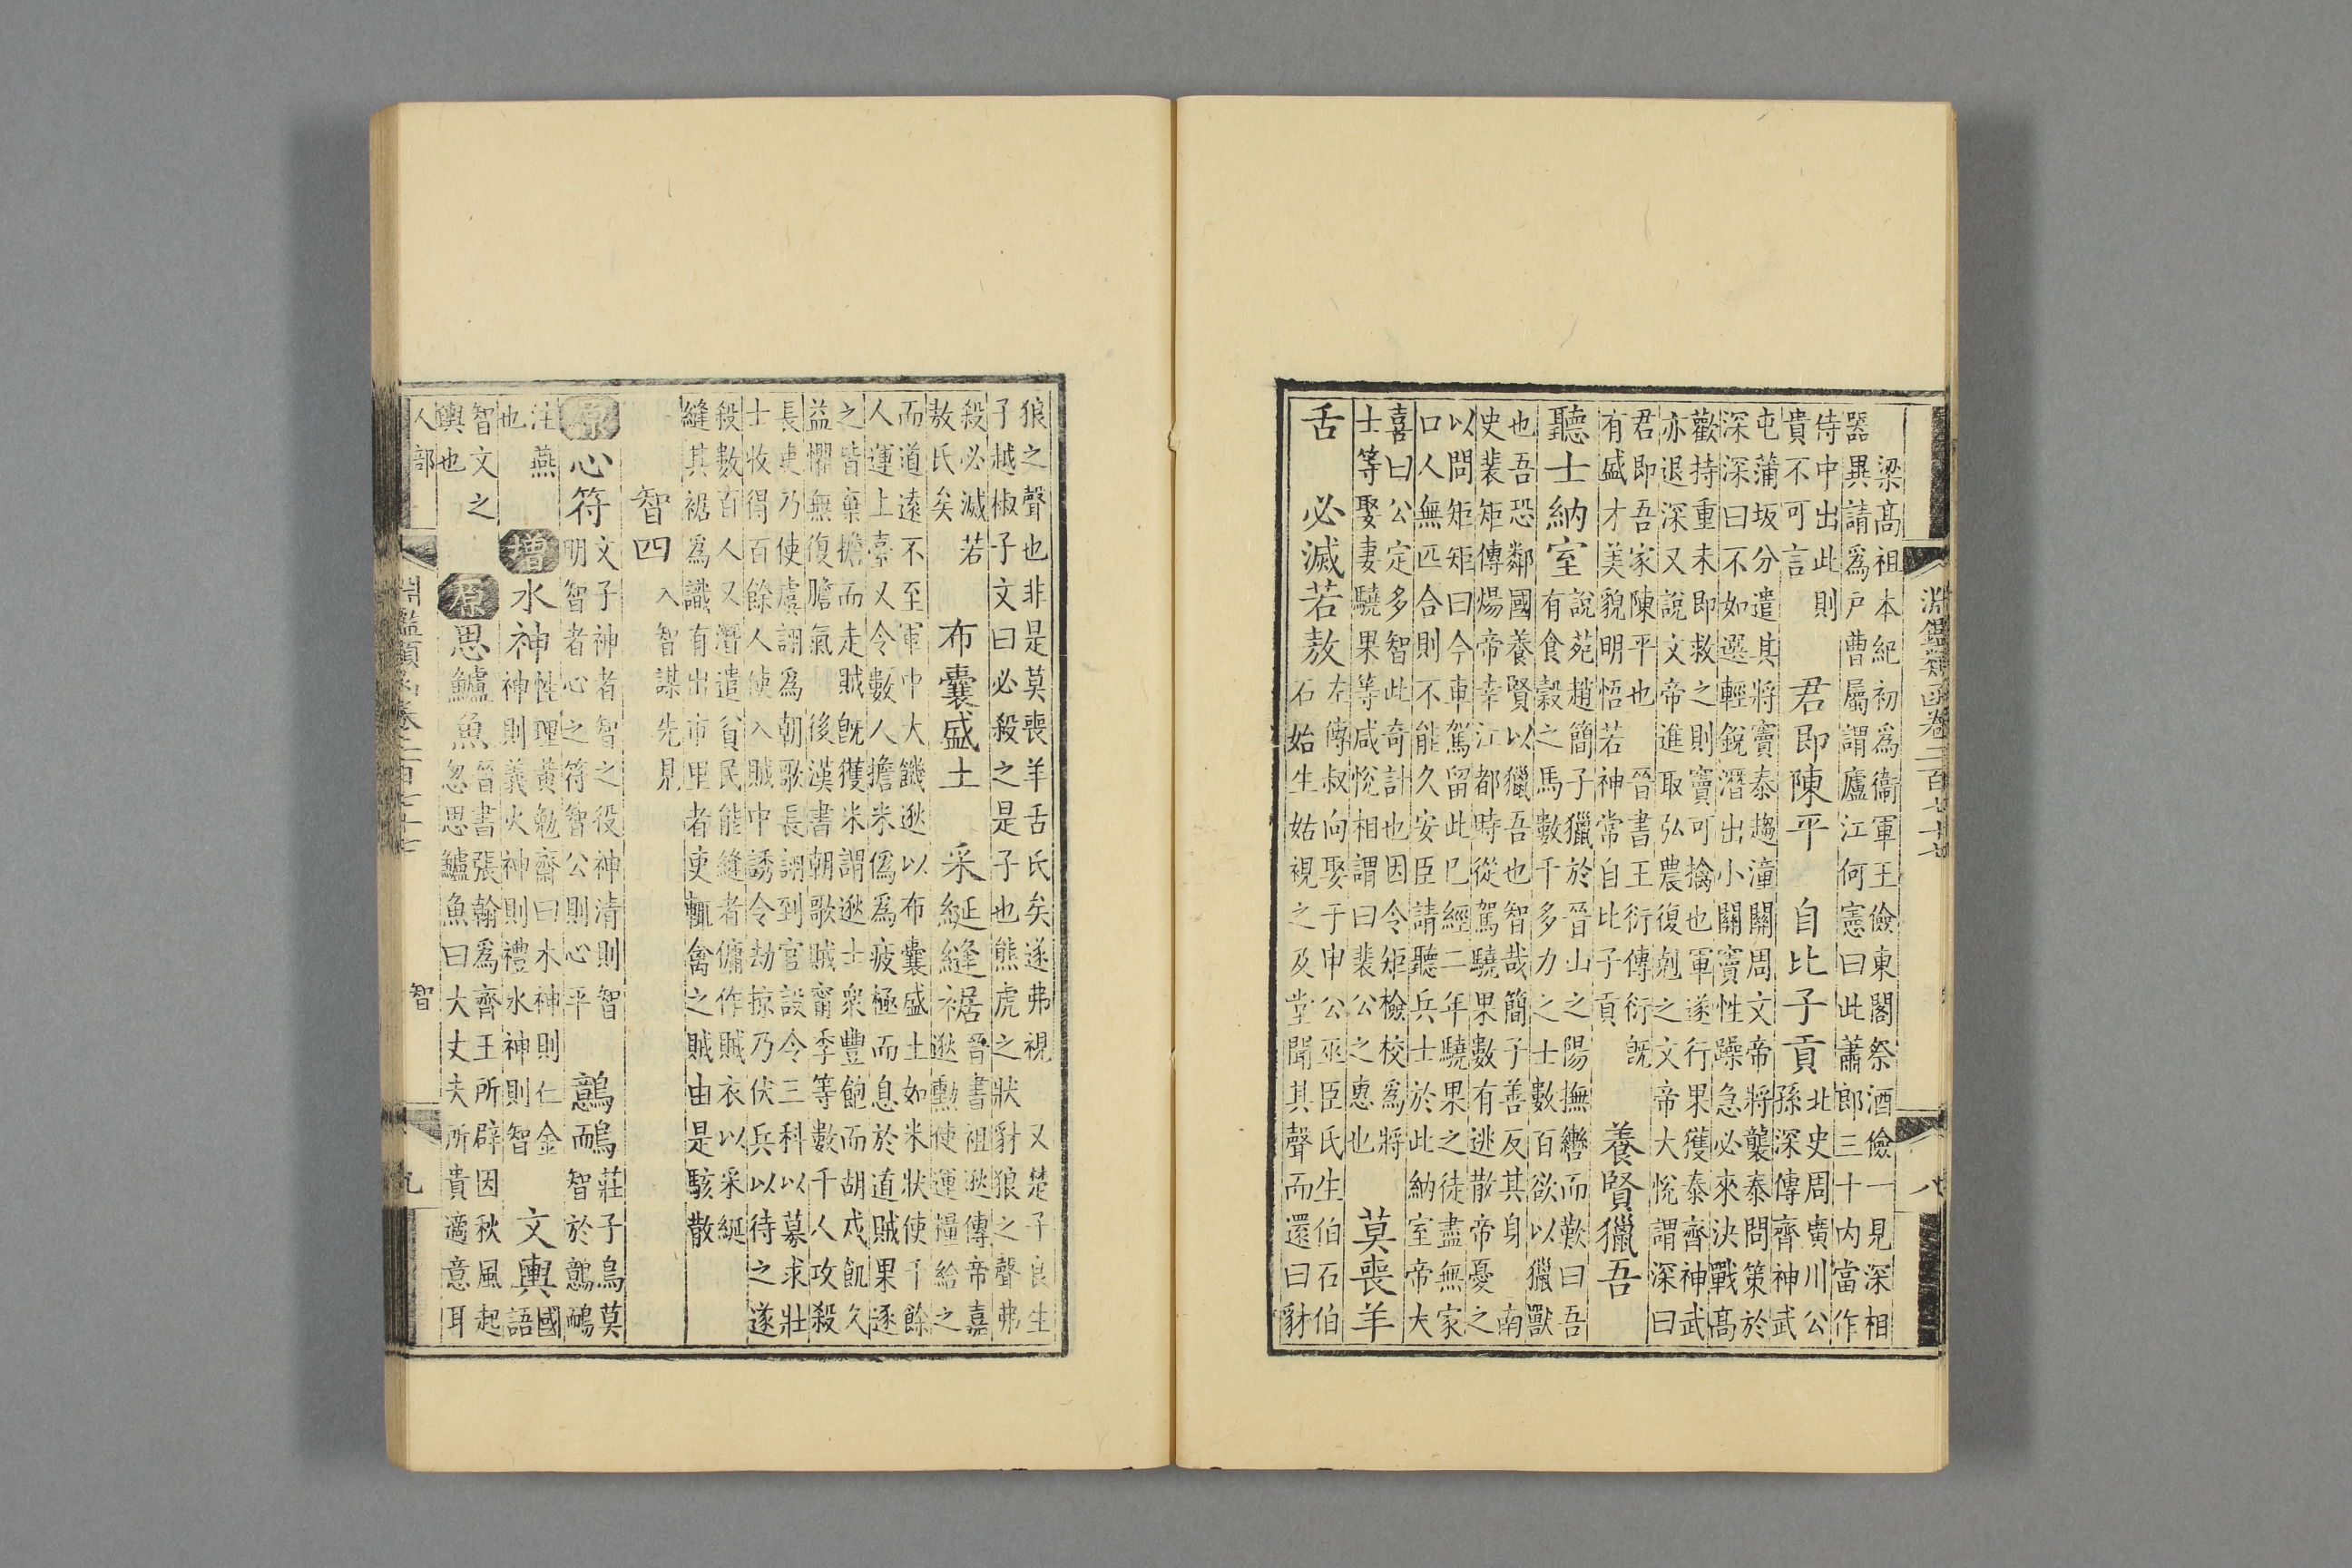 淵鑑類函卷二百七十七 八
梁高祖本紀初爲衞軍王儉東閣祭酒儉一見深相
器異請爲戶曹屬謂廬江何憲曰此蕭郎三十内當作
侍中出此則
貴不可言
君即陳平 自比子貢
北史周廣川公
孫深傳齊神武
屯蒲坂分遣其將竇泰趨潼關周文帝將襲泰問策於
深深曰不如選輕銳潛出小關竇性躁急必來決戰高
歡持重未即救之則竇可擒也軍遂行果獲泰齊神武
亦退深又說文帝進取弘農復剋之文帝大悅謂深曰
君即吾家陳平也 晉書王衍傳衍旣
有盛才美貌明悟若神常自比子貢
養賢獵吾
聽士納室
說苑趙簡子獵於晉山之陽撫轡而歎曰吾
有食穀之馬數千多力之士數百欲以獵獸
也吾恐鄰國養賢以獵吾也智哉簡子善反其身 南
史裴矩傳煬帝幸江都時從駕驍果數有逃散帝憂之
以問矩矩曰今車駕留此巳經二年驍果之徒盡無家
口人無匹合則不能久安臣請聽兵士於此納室帝大
喜曰公定多智此奇計也因令矩檢校爲將
士等娶妻驍果等咸悅相謂曰裴公之惠也
莫喪羊
舌 必滅若敖
左傳叔向娶于申公巫臣氏生伯石伯
石始生姑視之及堂聞其聲而還曰豺
狼之聲也非是莫喪羊舌氏矣遂弗視 又楚子良生
子越椒子文曰必殺之是子也熊虎之狀豺狼之聲弗
殺必滅若
敖氏矣
布囊盛土 采綖縫裾
晉書祖逖傳帝嘉
逖勳使運糧給之
而道遠不至軍中大饑逖以布囊盛土如米狀使千餘
人運上臺又令數人擔米僞爲疲極而息於道賊果逐
之皆棄擔而走賊旣獲米謂逖士衆豐飽而胡戍飢久
益懼無復膽氣 後漢書朝歌賊甯季等數千人攻殺
長吏乃使虞詡爲朝歌長詡到官設令三科以募求壯
士收得百餘人使入賊中誘令劫掠乃伏兵以待之遂
殺數百人又潛遣貧民能縫者傭作賊衣以采綖
縫其裾爲識有出市里者吏輒禽之賊由是駭散
智四
入智謀先見
原 心符
文子神者智之役神清則智
明智者心之符智公則心平
鷾鴯
莊子鳥莫
智於鷾鴯
注燕
也
增 水神
性理黃勉齋曰木神則仁金
神則義火神則禮水神則智
文輿
國
語
智文之
輿也
原 思鱸魚
晉書張翰爲齊王所辟因秋風起
忽思鱸魚曰大丈夫所貴適意耳
人部
淵鑑類函卷二百七十七 智 九